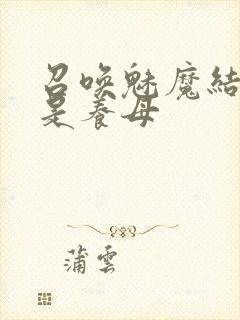 召喚魅魔結
是養母
蒲雲